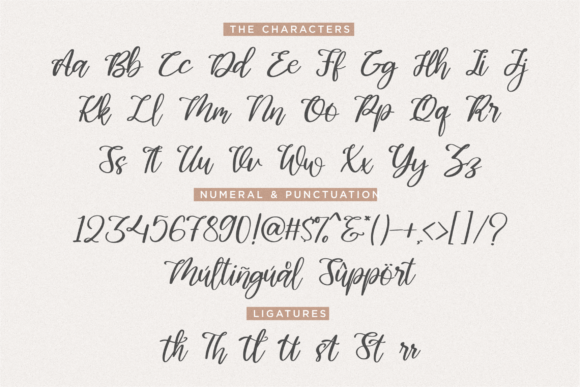 THE CHARACTERS
Aa Bb Cc Dd Ee Ff Gg Hh Ii Jj
Kk Ll Mm Nn Oo Pp Qq Rr
Ss Tt Uu Vv Ww Xx Yy Zz
NUMERAL & PUNCTUATION
1234567890!@#$%^&*()-+,<>[]/?
Multiñguål Sûppört
LIGATURES
th Th tl tt st St rr